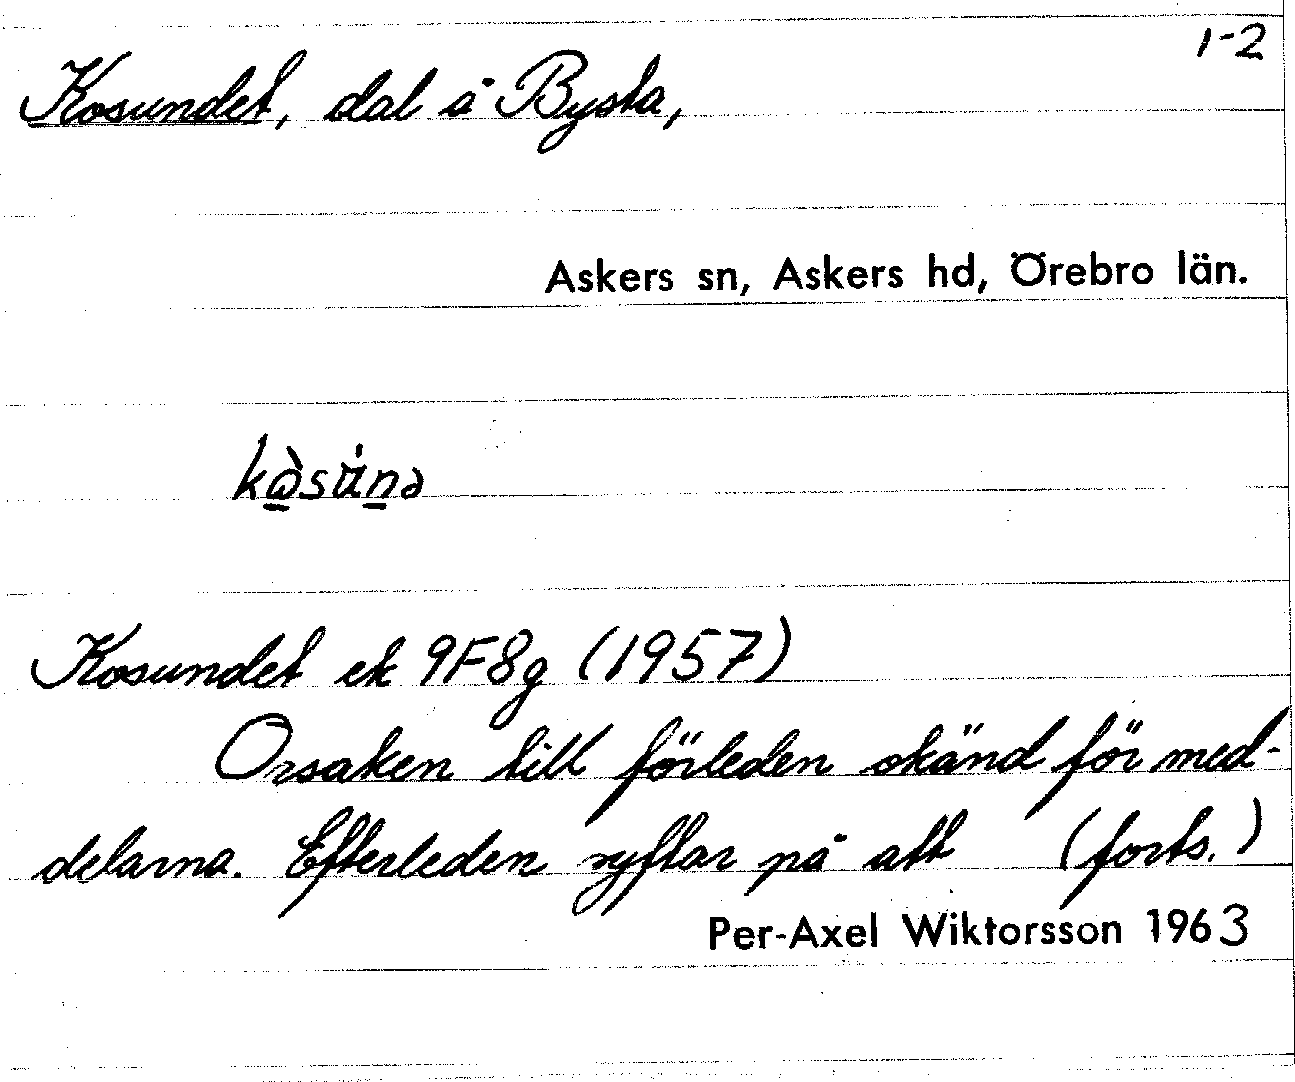 1-2
Kosundet, dal å Bysta,
Askers sn, Askers hd, Örebro län.
Kosundet ek 9F8g (1957)
Orsaken till förleden okänd för med-
delarna. Efterleden syftar på att (forts.)
Per-Axel Wiktorsson 1963